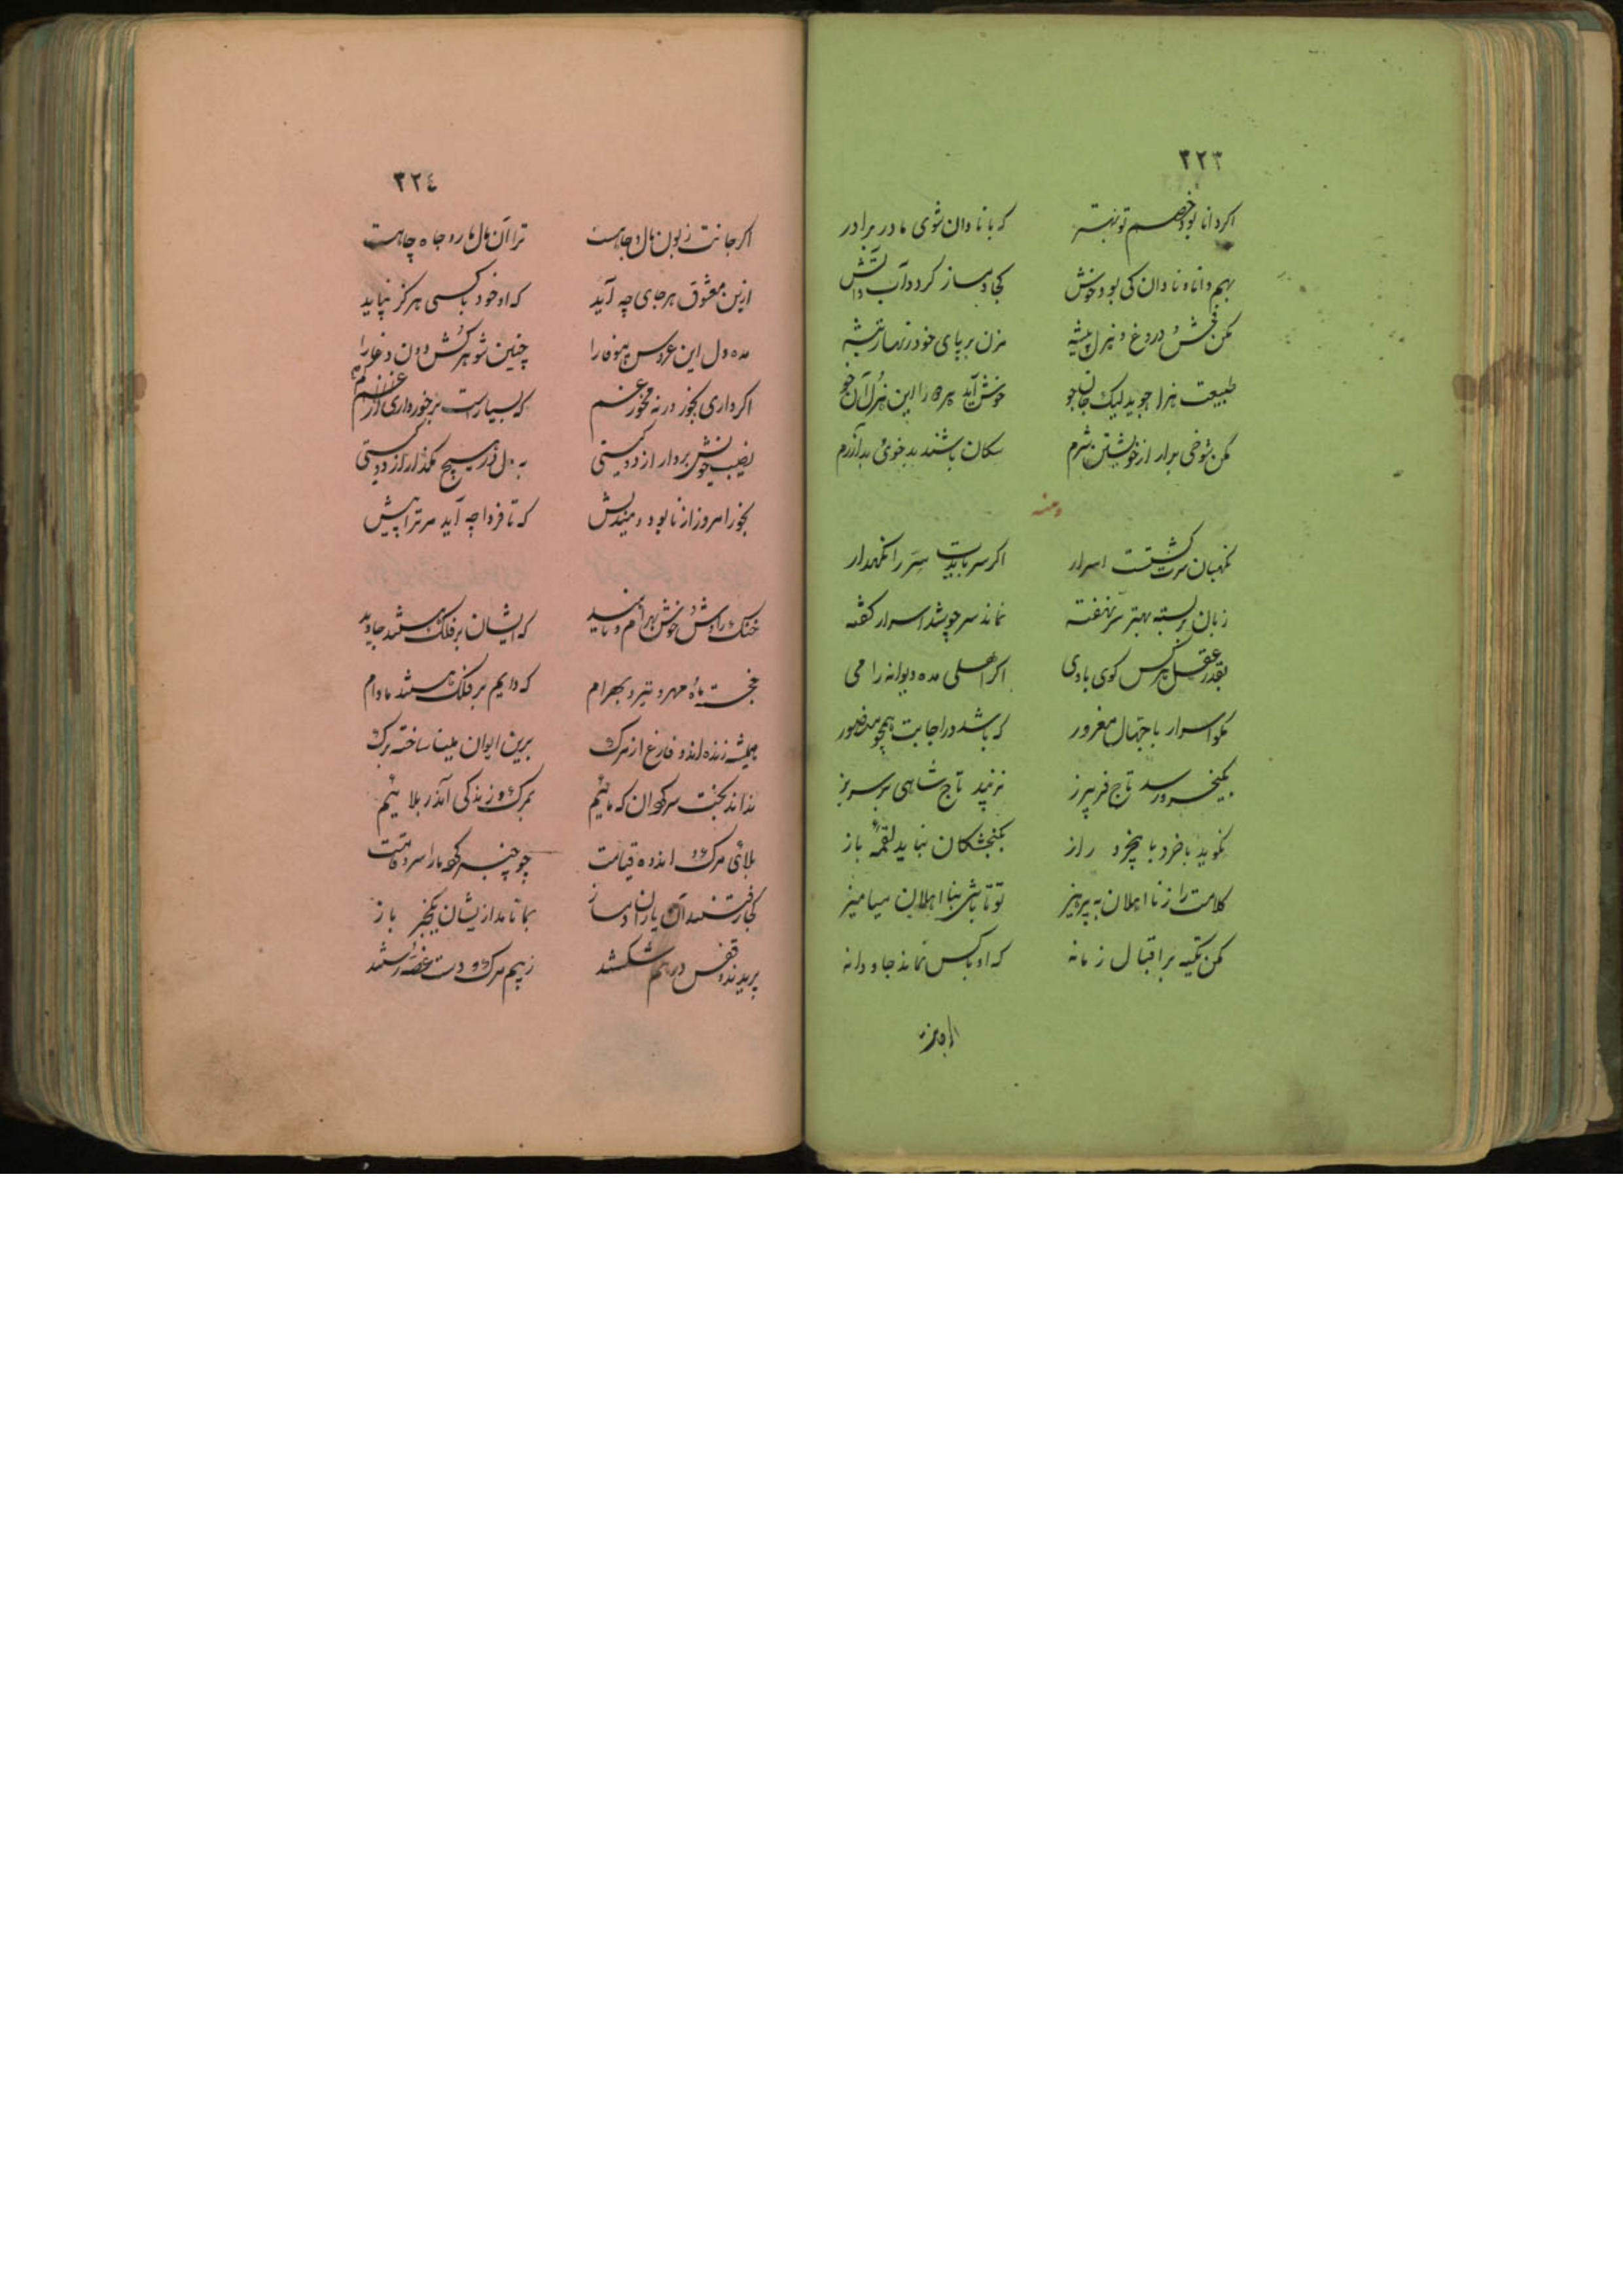 ۳۲۳
اکر دانا بود خصم تو بهتر که با نادان شوی مادر برادر
بهم دانا و نادان کی بود خوش کجا دمساز کردد آب و آتش
مکن فحش و دروغ و هزل پیشه مزن بر پای خود زنهار تیشه
طبیعت هزل جوید لیک جان جو خوش آید هر را این هزل آن خو
مکن شوخی بدار از خویشتن شرم سکان باشند بدخوی و بد آزرم
ومنه
نکهبان سرت کشتست اسرار اکر سر بایدت سر را نکهدار
زبان بربسته بهتر سر نهفته نماند سر چو شد اسرار کفته
بقدر عقل هر کس کوی با وی اکر اهلی مده دیوانه را می
مکو اسرار با جهال مغرور که باشد در اجابت همچو منصور
بکیخسرو رسد تاج فریبرز نزیبد تاج شاهی بر سر بز
نکوید با خرد با بیخرد راز بکنجشکان نباید لقمهٔ باز
کلامت را ز نا اهلان به پرهیز تو تا باشی بنا اهلان میامیز
مکن تکیه بر اقبال زمانه که او با کس نماند جاودانه
۳۲٤
اکر جانت زبون مال و جاهست ترا آن مال مار و جاه چاهست
ازین معشوق هرجای چه آید که او خود با کسی هرکز نپاید
مده دل این عروس بیوفا را چنین شوهر کش دون دغا را
اکر داری بخور ورنه مخور غم که بسیارست برخورداری از غم
نصیب خویش بردار از دو کیتی به دل در هیچ مکذار از دو کستی
بخور امروز از نابود مندیش که تا فردا چه آید مر ترا پیش
خنک را و خوش بهرام و ناهید که ایشان بر فلک هستند جاوید
خجسته ماه و مهر و تیر و بهرام که دایم بر فلک هستند مادام
همیشه زنده اند و فارغ از مرک برین ایوان مینا ساخته برک
نداند بخت سرکردان که مائیم بمرک و زندکی اندر بلائیم
بلای مرک و اندوه قیامت چو چنبر کرد ما را سرو قامت
کجا رفتند آن یاران دمساز بما نامد ازیشان یکخبر باز
پریدند و قفس درهم شکستند ز بیم مرک و دست غصه رستند